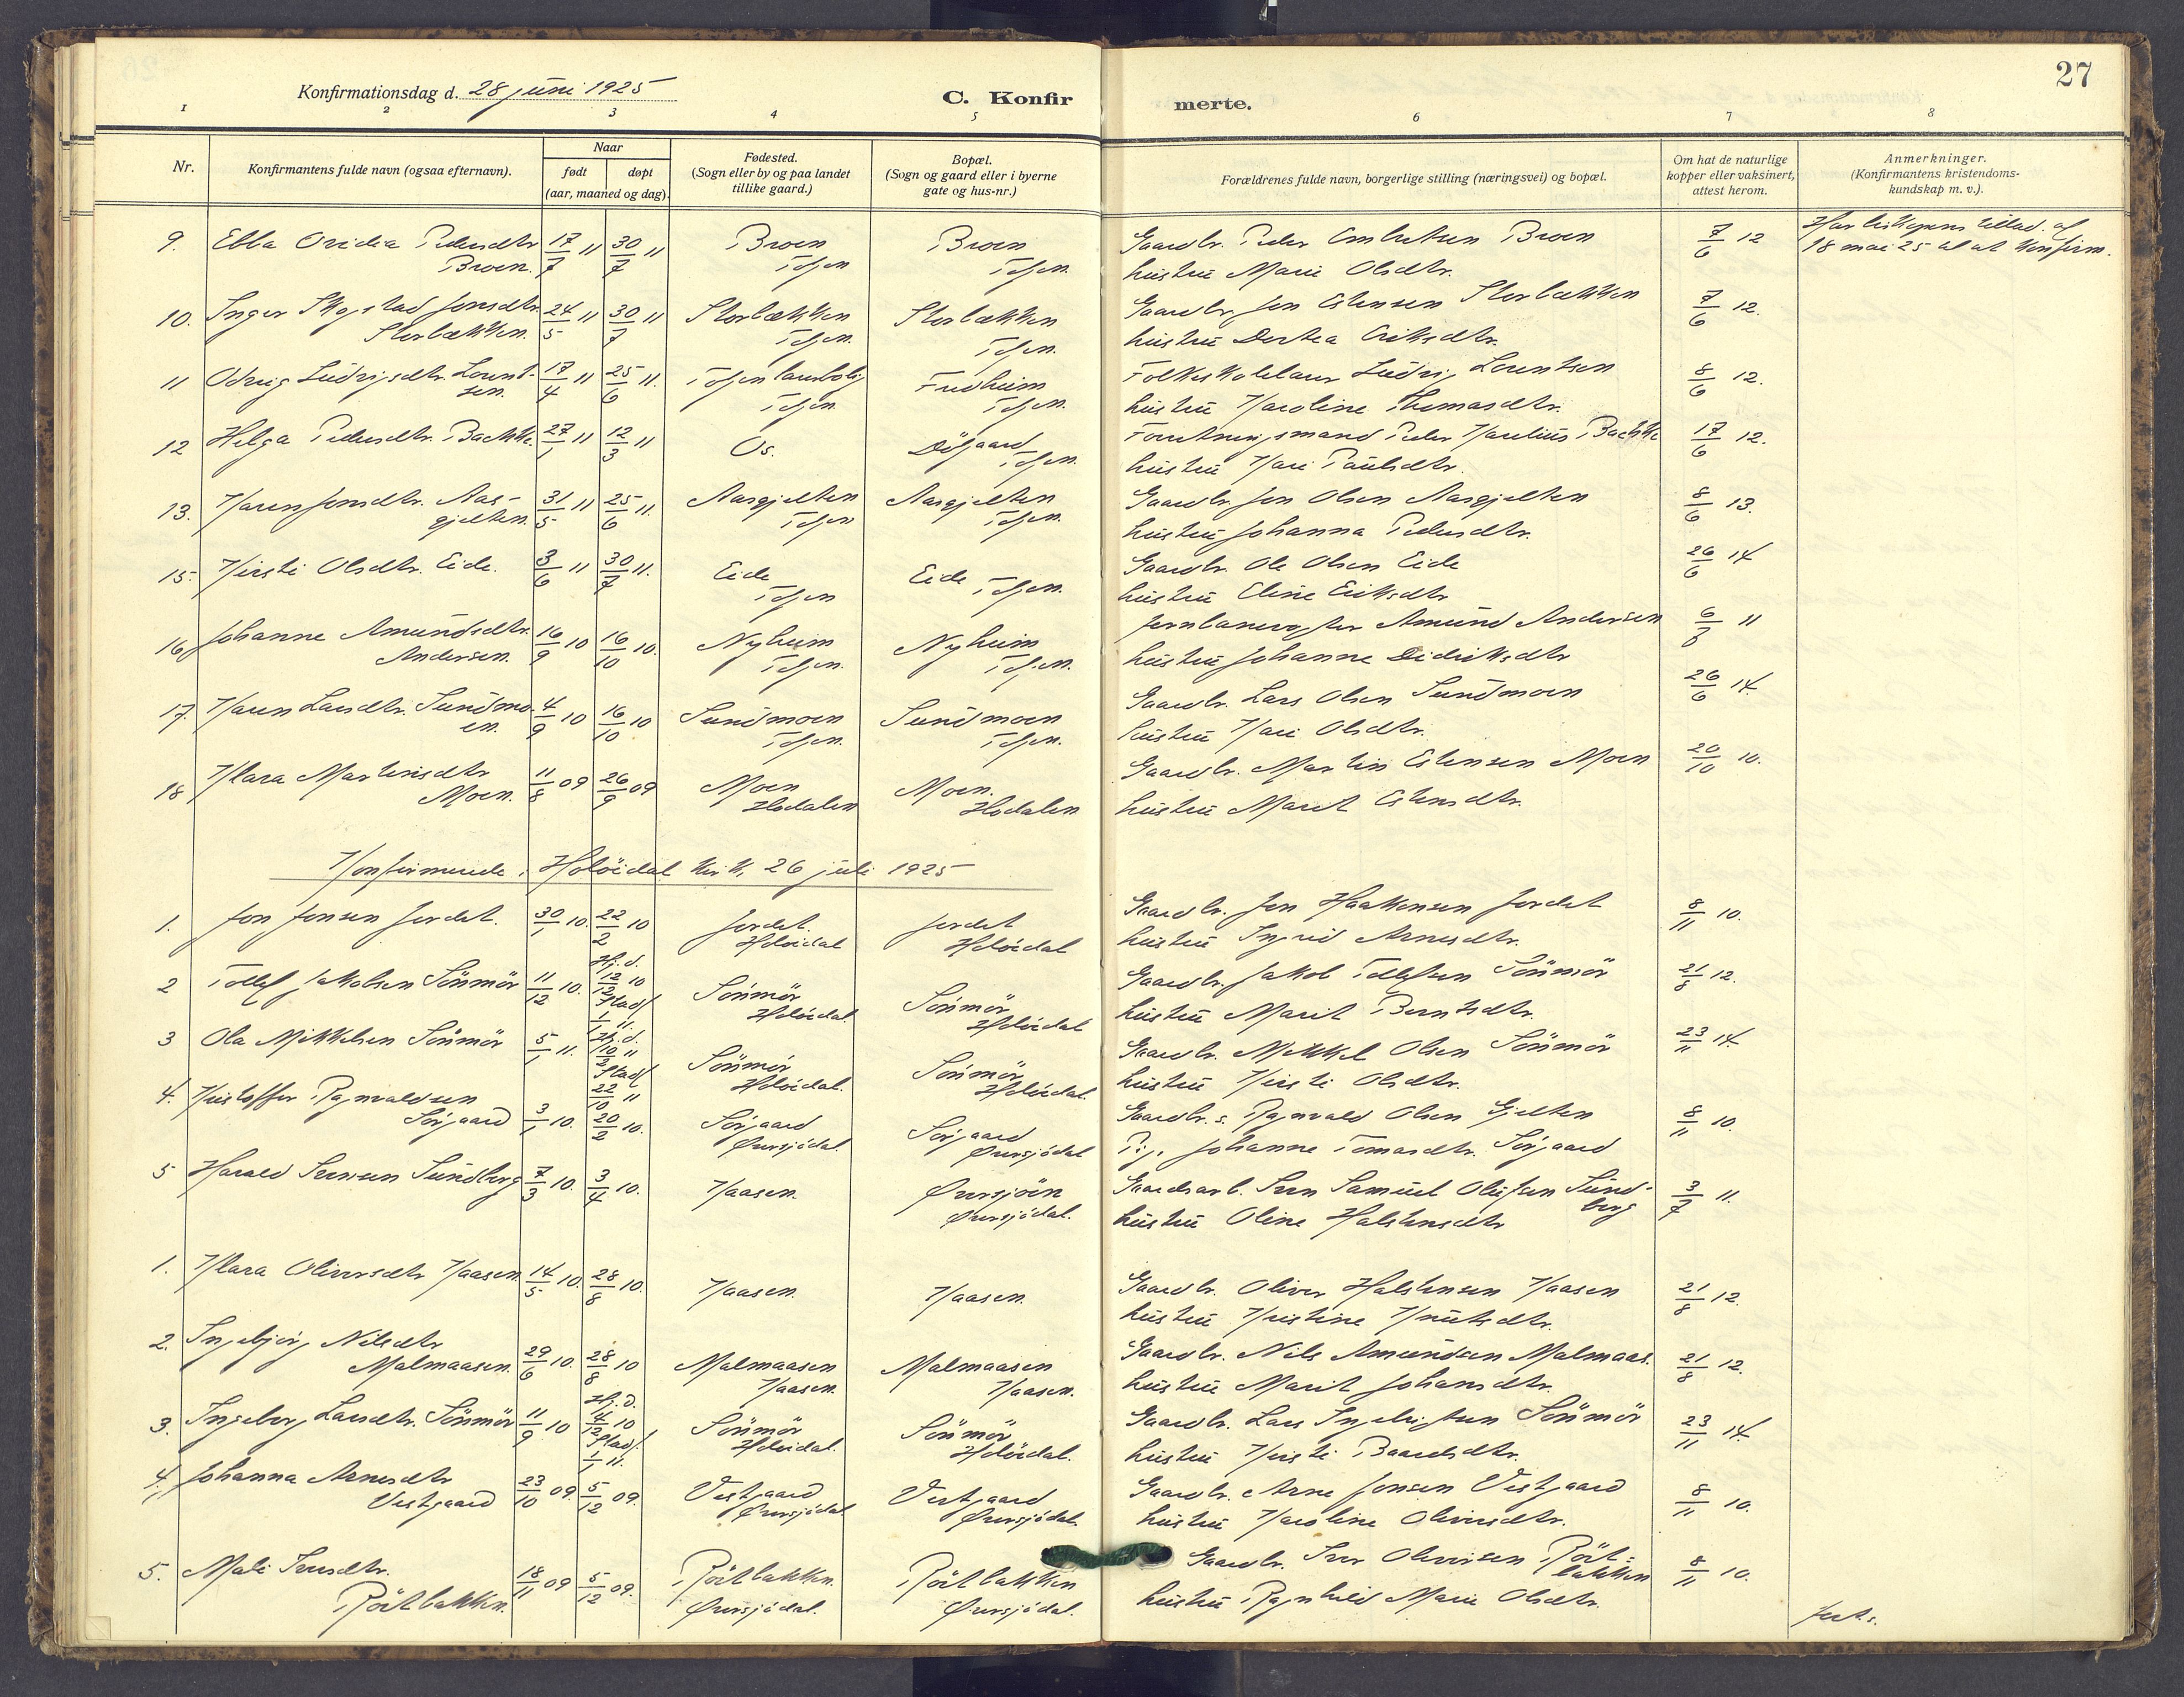 27
Konfirmationsdag d. 28 juni 1925
C. Konfirmerte.
1 2 3 4 5 6 7 8
Nr.
Konfirmantens fulde navn (ogsaa efternavn).
Naar
født døpt
(aar, maaned og dag).
Fødested.
(Sogn eller by og paa landet
tillike gaard.)
Bopæl.
(Sogn og gaard eller i byerne
gate og hus-nr.)
Forældrenes fulde navn, borgerlige stilling (næringsvei) og bopæl.
Om hat de naturlige
kopper eller vaksinert,
attest herom.
Anmerkninger.
(Konfirmantens kristendoms-
kundskap m. v.).
9. Ebba Ovidia Pedersdtr 17/7 11 30/7 11 Broen Broen Gaardbr. Peder Embretsen Broen 7/6 12 Har biskopens tillad. af
Broen. Tolgen Tolgen. hustru Marie Olsdtr. 18 mai 25 til at konfirm.
10. Inger Skogstad Jonsdtr. 24/5 11 30/7 11 Storbækken Storbækken Gaardbr. Jon Estensen Storbækken 7/6 12.
Storbækken. Tolgen. Tolgen. hustru Dortea Eriksdtr.
11 Odveig Ludvigsdtr. Lorent- 17/4 11 25/6 11. Tolgen lærerbolig Fredheim Folkeskolelærer Ludvig Lorentsen 8/6 12.
sen. Tolgen. Tolgen. hustru Karoline Thomasdtr.
12 Helga Pedersdtr. Bakke 27/1 11 12/3 11 Os. Digaard Forretningsmand Peder Karelius Bakke 17/6 12.
Tolgen. hustru Kari Paulsdtr.
13. Karen Jonsdtr. Aas- 31/5 11 25/6 11. Aasgjelten Aasgjelten Gaardbr. Jon Olsen Aasgjelten 8/6 13.
gjelten. Tolgen Tolgen. hustru Johanna Pedersdtr.
15. Kirsti Olsdtr. Eide. 3/6 11 30/7 11. Eide Eide Gaardbr. Ole Olsen Eide 26/6 14
Tolgen Tolgen. hustru Eline Eriksdtr
16 Johanne Amundsdtr. 16/9 10 16/10 10. Nyheim Nyheim Jernbanevogter Amund Andersen 6/8 11
Andersen. Tolgen. Tolgen. hustru Johanne Didriksdtr
17. Karen Larsdtr. Sundmo- 4/9 10 16/10 10 Sundmoen Sundmoen Gaardbr. Lars Olsen Sundmoen 26/6 14.
en. Tolgen. Tolgen. hustru Kari Olsdtr.
18 Klara Martinsdtr 11/8 09 26/9 09 Moen Moen. Gaardbr. Martin Estensen Moen 20/10 10.
Moen. Hodalen Hodalen hustru Marit Estensdtr.
Konfirmerede i Holöidal kirke 26 juli 1925
1. Jon Jonsen Jordet. 30/1 10. 22/2 10 Jordet. Jordet Gaardbr. Jon Haakensen Jordet 8/11 10.
Holöidal Holöidal hustru Ingrid Arnesdtr.
2 Tollef Jakobsen Sömmör 11/12 10. Hj. d. 12/12 10 Stadf. 1/1 11. Sömmör Sömmör Gaardbr. Jakob Tollefsen Sömmör 21/8 12.
Holöidal. Holöidal hustru Marit Berntsdtr.
3 Ola Mikkelsen Sömmör 5/1 11. Hj. d. 10/2 11 Stadf. 22/10 11 Sömmör Sömmör Gaardbr. Mikkel Olsen Sömmör 23/11 14.
Holöidal. Holöidal. hustru Kirsti Olsdtr.
4. Kristoffer Ragnvaldsen Sörgaard Sörgaard Gaardbr.s. Ragnvald Olsen Gjelten 8/11 10.
Sörgaard 3/1 10. 20/2 10. Øversjödal. Øversjödal Pige Johanne Tomasdtr. Sörgaard
5 Harald Svensen Sundberg 7/3 10. 3/4 10. Kaasen. Øversjöen Gaardsarb. Sven Samuel Olufsen Sund- 3/7 11.
Øversjödal. berg
hustru Oline Halstensdtr
1. Klara Oliversdtr Kaasen. 14/5 10. 28/8 10. Kaasen. Kaasen. Gaardbr. Oliver Halstensen Kaasen 21/8 12.
hustru Kristine Knutsdtr.
2. Ingebjörg Nilsdtr Malmaasen Malmaasen Gaardbr. Nils Amundsen Malmaas. 21/8 12.
Malmaasen. 29/6 10. 28/8 10 Kaasen. Kaasen. hustru Marit Johansdtr.
3. Ingeborg Larsdtr. Sömmör 11/9 10 Hj. d. 4/12 10 Stadf. 1/1 11. Sömmör Sömmör Gaardbr. Lars Ingebrigtsen Sömmör 23/11 14.
Holöidal. Holöidal. hustru Kirsti Baardsdtr.
4. Johanna Arnesdtr Vestgaard Vestgaard Gaardbr. Arne Jonsen Vestgaard 8/11 10.
Vestgaard 23/10 09. 5/12 09. Øversjödal. Øversjödal. hustru Karoline Oliversdtr.
5. Mali Iversdtr. 18/11 09 5/12 09. Röstbakken. Röstbakken Gaardbr. Iver Oliversen Röst- 8/11 10.
Röstbakken. Øversjödal. Øversjödal. bakken
hustru Ragnhild Marie Olsdtr.
forts.